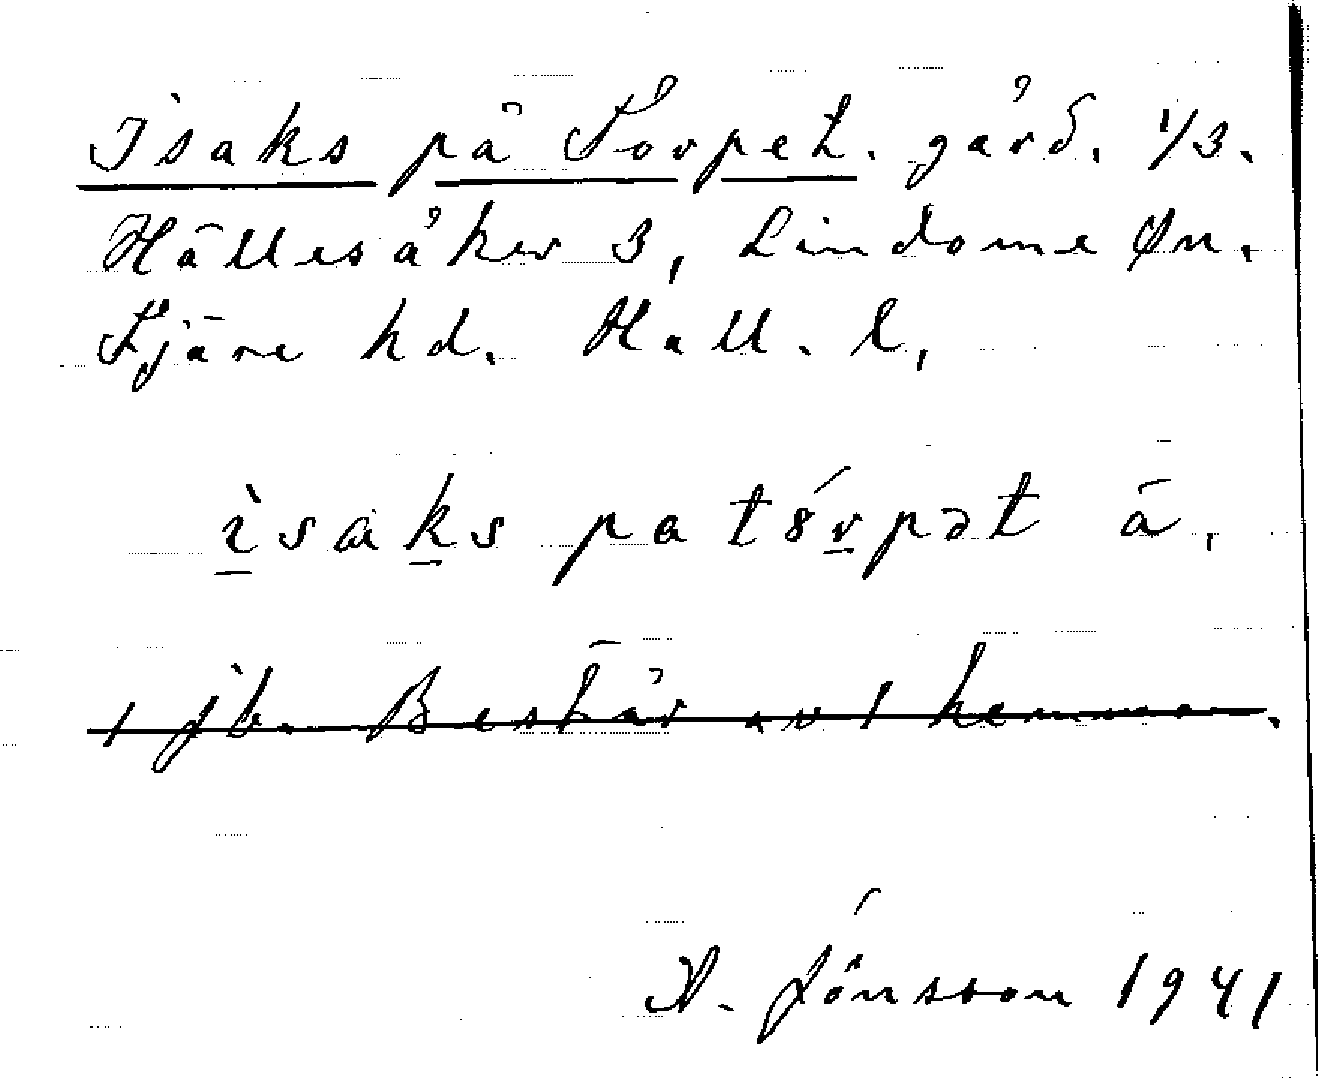 Isaks på Torpet. gård. 1/3.
Hällesåker 3, Lindome sn.
Fjäre hd. Hall. l.
ìsaks pa tórpət å.
1 jb. Består av 1 hemman.
A. Jönsson 1941